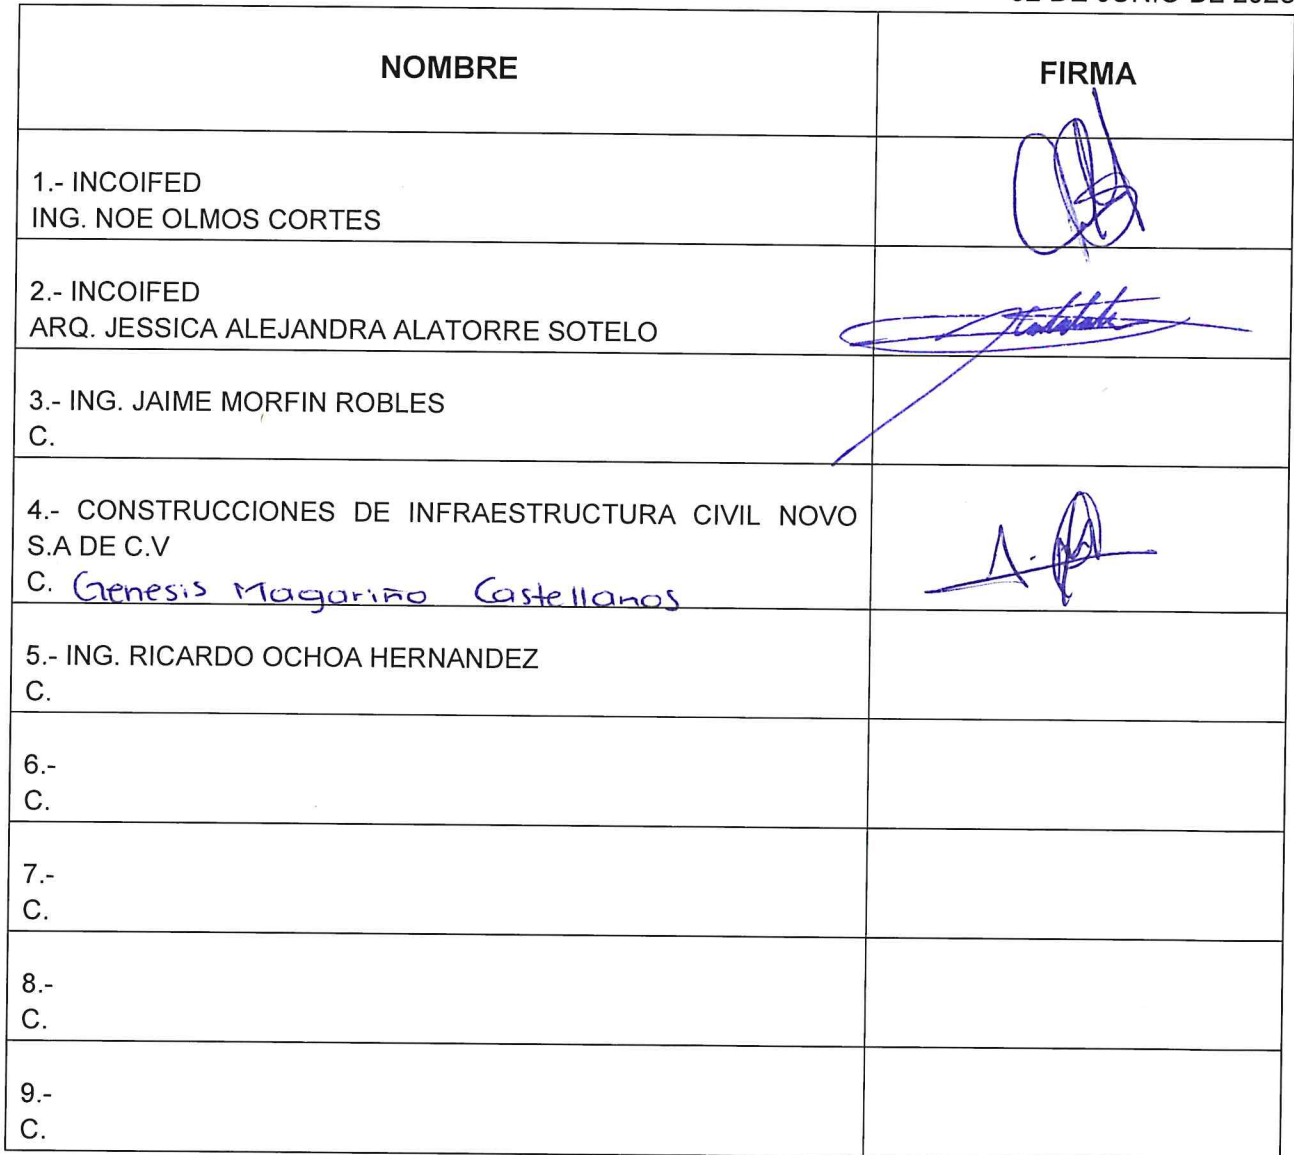 DE JUNIO DE
NOMBRE
FIRMA
1.- INCOIFED
ING. NOE OLMOS CORTES
2.- INCOIFED
ARQ. JESSICA ALEJANDRA ALATORRE SOTELO
3.- ING. JAIME MORFIN ROBLES
C.
4.- CONSTRUCCIONES DE INFRAESTRUCTURA CIVIL NOVO
S.A DE C.V
C. Genesis Magariño Castellanos
5.- ING. RICARDO OCHOA HERNANDEZ
C.
6.-
C.
7.-
C.
8.-
C.
9.-
C.